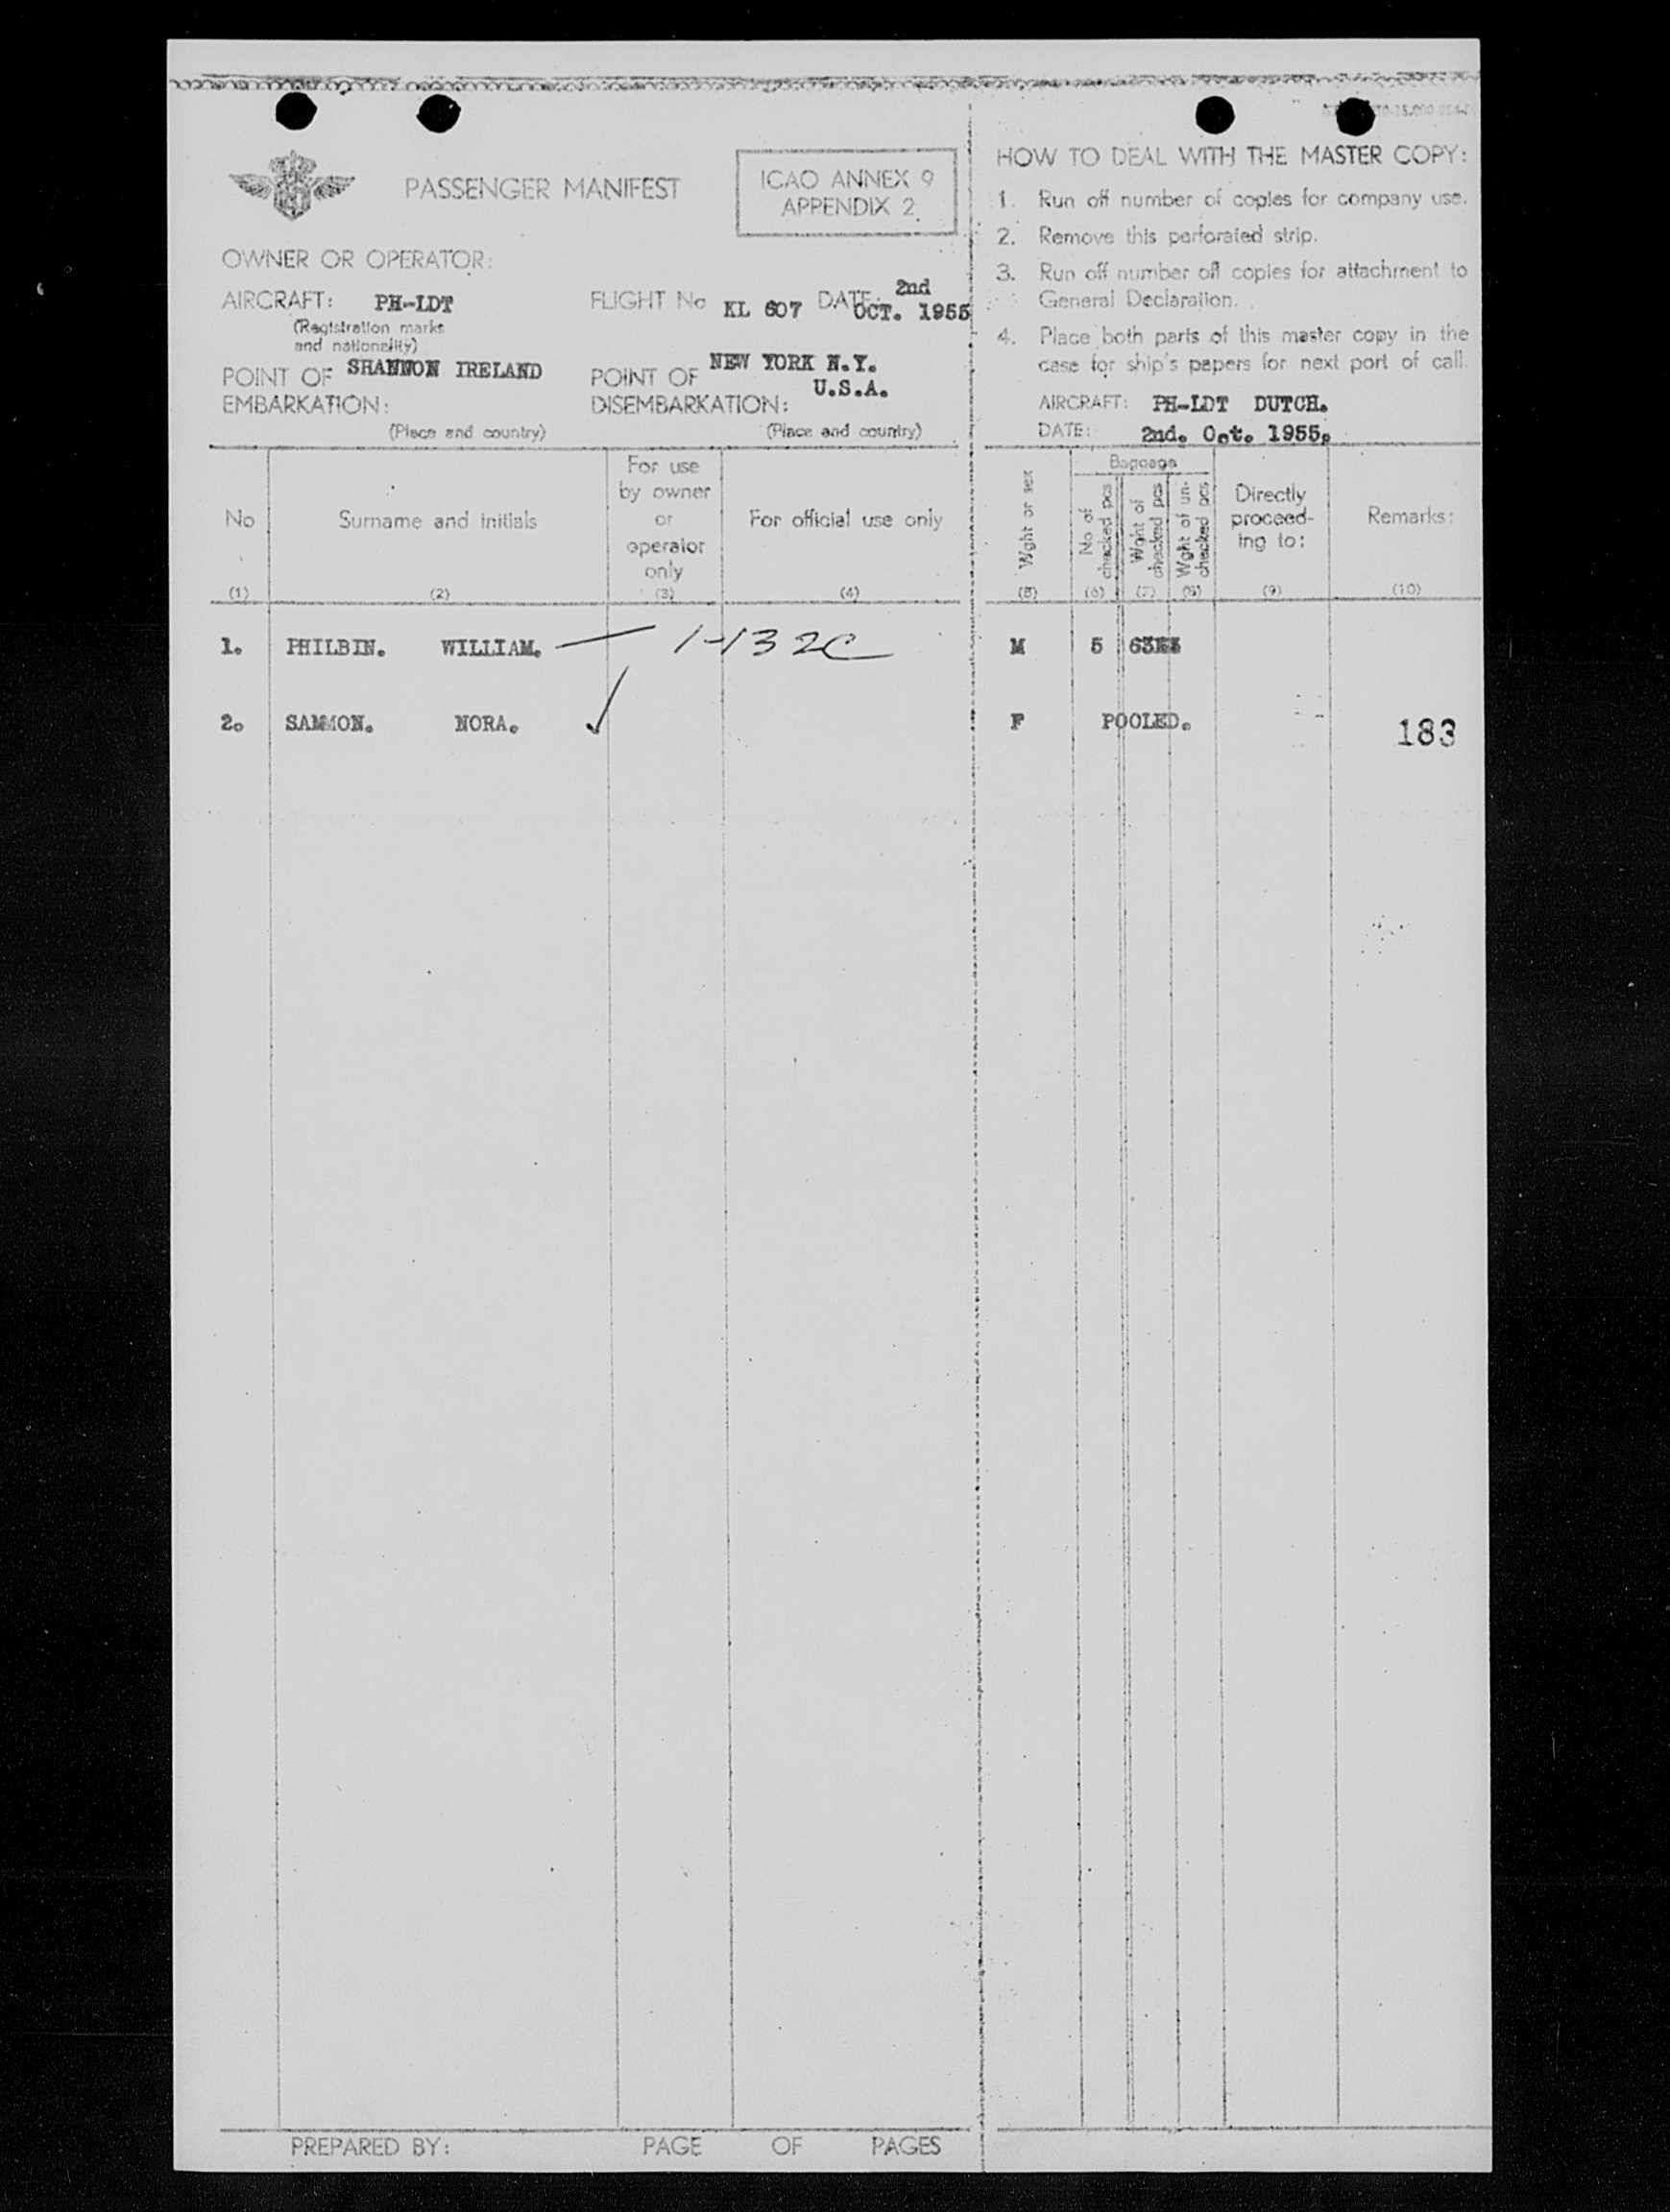 PASSENGER MANIFEST
ICAO ANNEX 9
APPENDIX 2
OWNER OR OPERATOR:
AIRCRAFT: PH-LDT
(Registration marks
and nationality)
FLIGHT No KL 607 DATE: 2nd
OCT. 1955
POINT OF SHANNON IRELAND
EMBARKATION:
(Place and country)
POINT OF NEW YORK N.Y.
U.S.A.
DISEMBARKATION:
(Place and country)
HOW TO DEAL WITH THE MASTER COPY:
1. Run off number of copies for company use.
2. Remove this perforated strip.
3. Run off number off copies for attachment to
General Declaration.
4. Place both parts of this master copy in the
case for ship's papers for next port of call.
AIRCRAFT: PH-LDT DUTCH.
DATE: 2nd. Oct. 1955.
No
(1)
Surname and initials
(2)
For use
by owner
or
operator
only
(3)
For official use only
(4)
Wght or sex
(5)
Baggage
No of
checked pcs
(6)
Wght of
checked pcs
(7)
Wght of un-
checked pcs
(8)
Directly
proceed-
ing to:
(9)
Remarks:
(10)
1. PHILBIN. WILLIAM. — 1-132C M 5
2. SAMMON. NORA. ✓ F POOLED. 183
PREPARED BY: PAGE OF PAGES